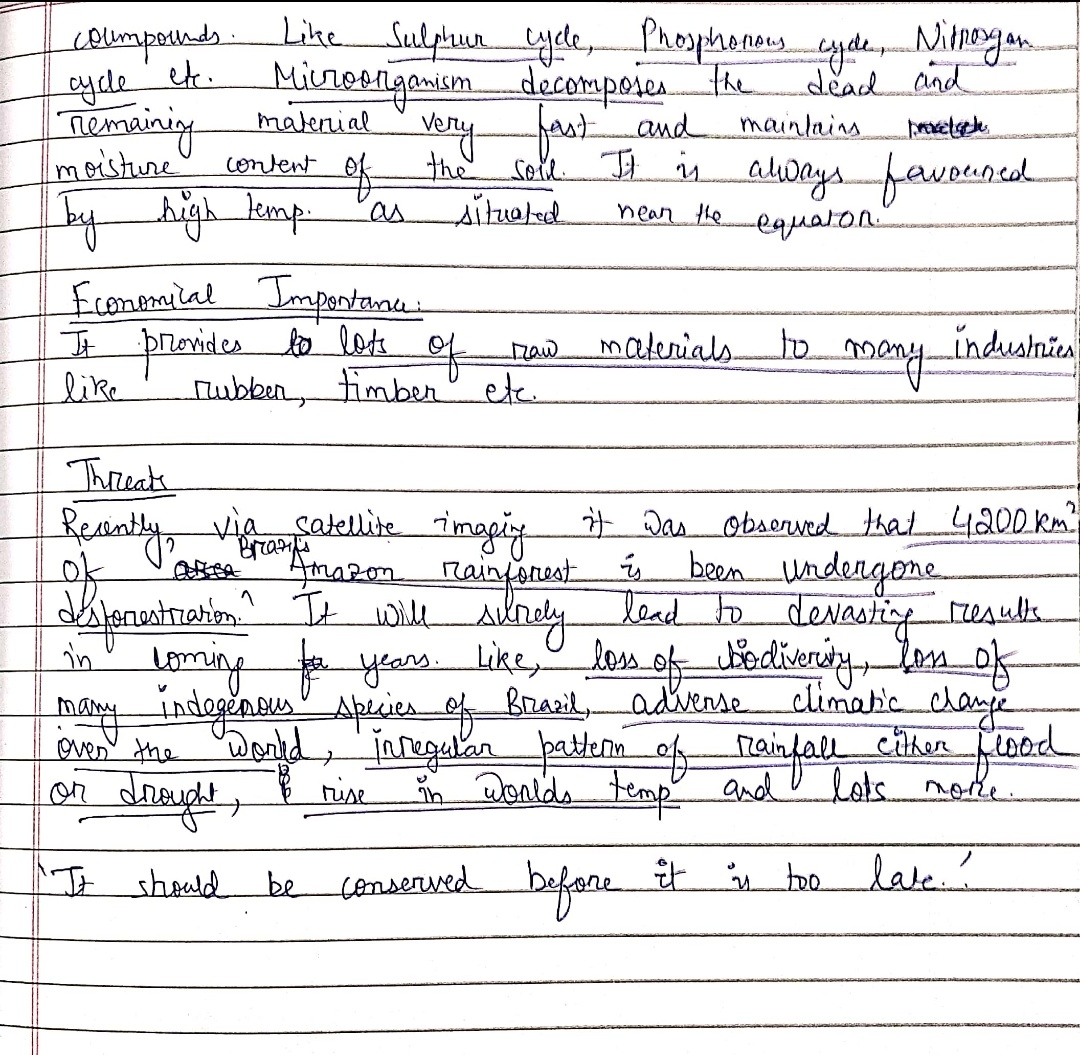 coumpounds. Like Sulphur cycle, Phosphorous cycle, Nitrogan
cycle etc. Microorganism decomposes the dead and
remaining material very fast and maintains
moisture content of the soil. It is always favoured
by high temp. as situated near the equator.
Economical Importance:
It provides to lots of raw materials to many industries
like rubber, timber etc.
Threats
Recently, via satellite imagig it was observed that 4200 km²
of Brazil's Amazon rainforest is been undergone
desforestration. It will surely lead to devasting results
in coming years. Like, loss of biodiversity, loss of
many indegenous species of Brazil, adverse climatic change
over the world, irregular pattern of rainfall either flood
or drought, & rise in worlds temp and lots more.
'It should be conserved before it is too late.'